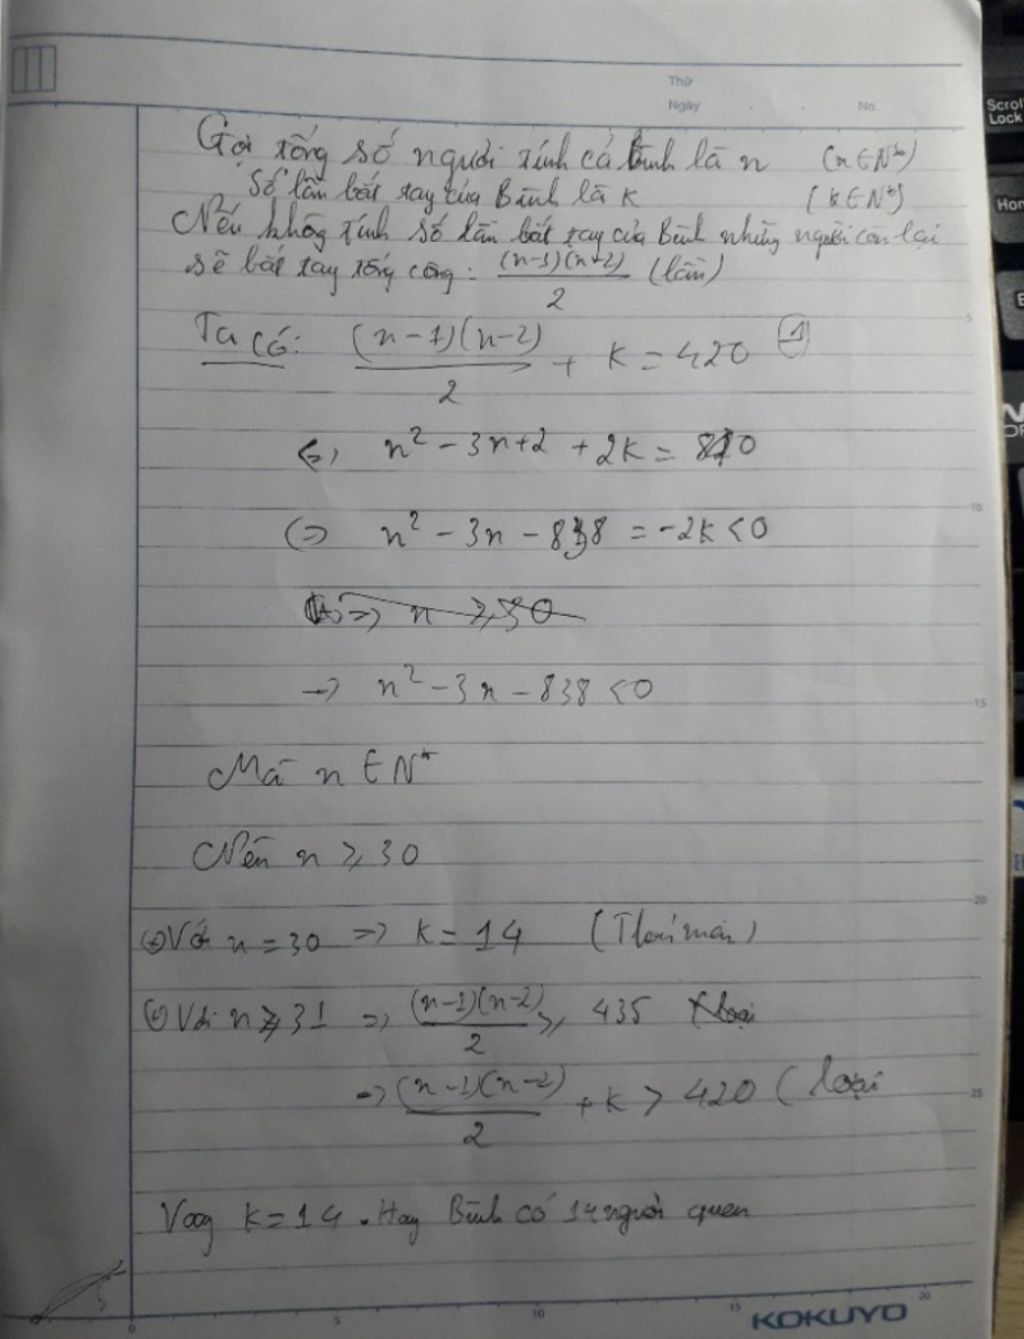 Thứ
Ngày . . No.
Scroll Lock
Gọi tổng số người tính cả Bình là n (n ∈ N*)
Số lần bắt tay của Bình là k (k ∈ N*)
Nếu không tính số lần bắt tay của Bình những người còn lại
sẽ bắt tay tổng cộng: (n-1)(n-2)/2 (lần)
Ta có: (n-1)(n-2)/2 + k = 420 (1)
(=) n² - 3n + 2 + 2k = 840
(=) n² - 3n - 838 = -2k < 0
=> n ≥ 30
-> n² - 3n - 838 < 0
Mà n ∈ N*
Nên n ≥ 30
+) Với n = 30 => k = 14 (Thoả mãn)
+) Với n ≥ 31 => (n-1)(n-2)/2 ≥ 435 (loại
=> (n-1)(n-2)/2 + k > 420 (loại
Vậy k = 14. Hay Bình có 14 người quen
5
10
15
20
25
0 5 10 15 20
KOKUYO